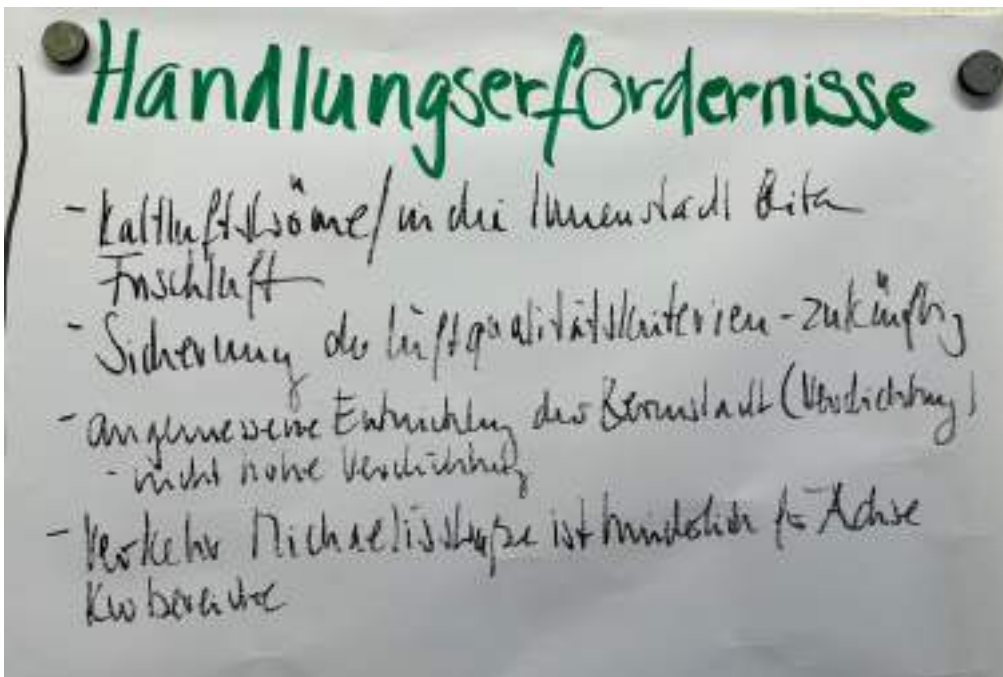 Handlungserfordernisse
- Kaltluftströme/in die Innenstadt
Frischluft
- Sicherung der Luftqualitätskriterien - zukünftig
- angemessene Entwicklung der (Verdichtung)
- nicht hohe Verdichtung
- Verkehr Michaelisstraße ist für Achse